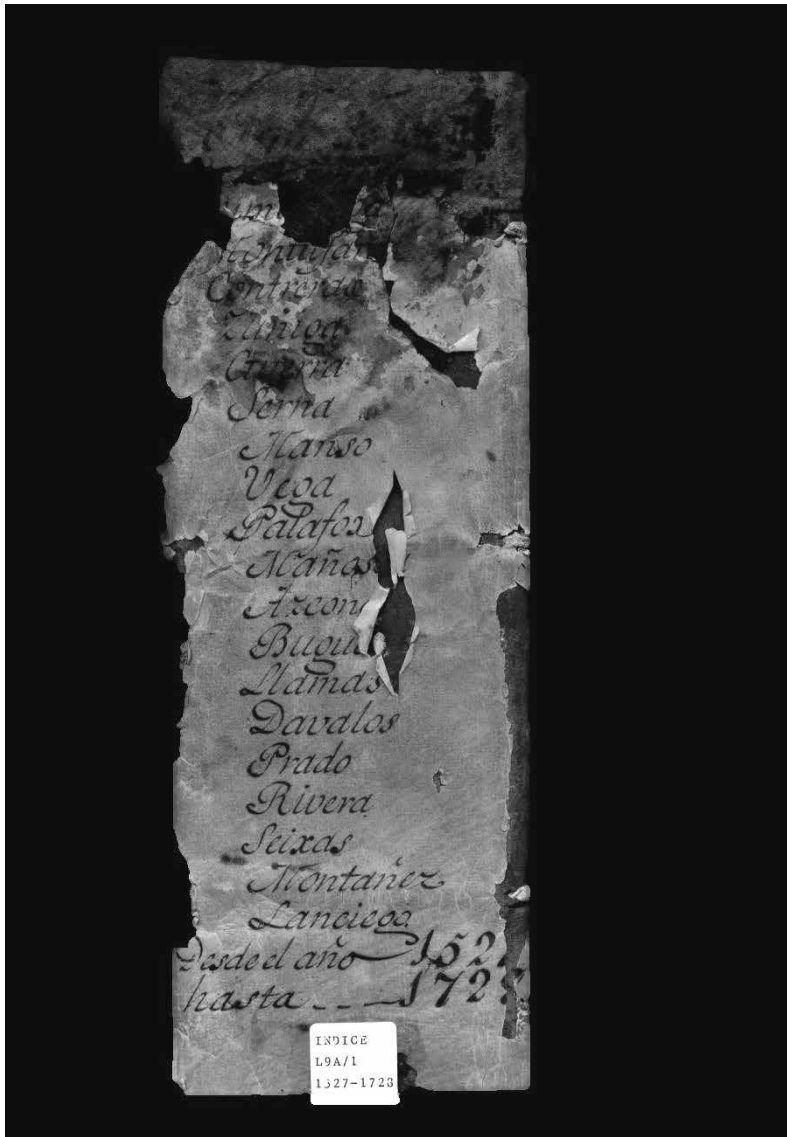 Contreras
Zuniga
Guerra
Serna
Manso
Vega
Palafox
Mañosc
Azcon
Bugue
Llamas
Davalos
Prado
Rivera
Seixas
Montañez
Lanciego
Desde el año 152
hasta 172
INDICE
L9A/1
1527-1728